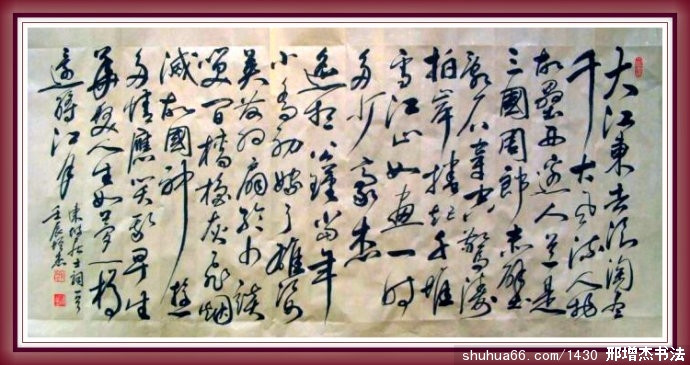 大江東去浪淘尽
千古风流人物
故壘西邊人道是
三國周郎赤壁
亂石穿空驚濤
拍岸捲起千堆
雪江山如畫一時
多少豪杰
遥想公瑾當年
小喬初嫁了雄姿
英發羽扇綸巾談
笑間檣櫓灰飛烟
滅故國神遊
多情應笑我早生
華髮人生如夢一樽
還酹江月
東坡居士詞一首
壬辰增杰
shuhua66.com/1430 邢增杰书法